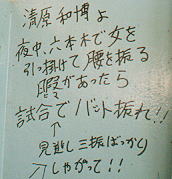 清原和博よ
夜中、六本木で女を
引っ掛けて腰を振る
暇があったら
試合でバット振れ!!
↑
見逃し三振ばっかり
↗しやがって!!